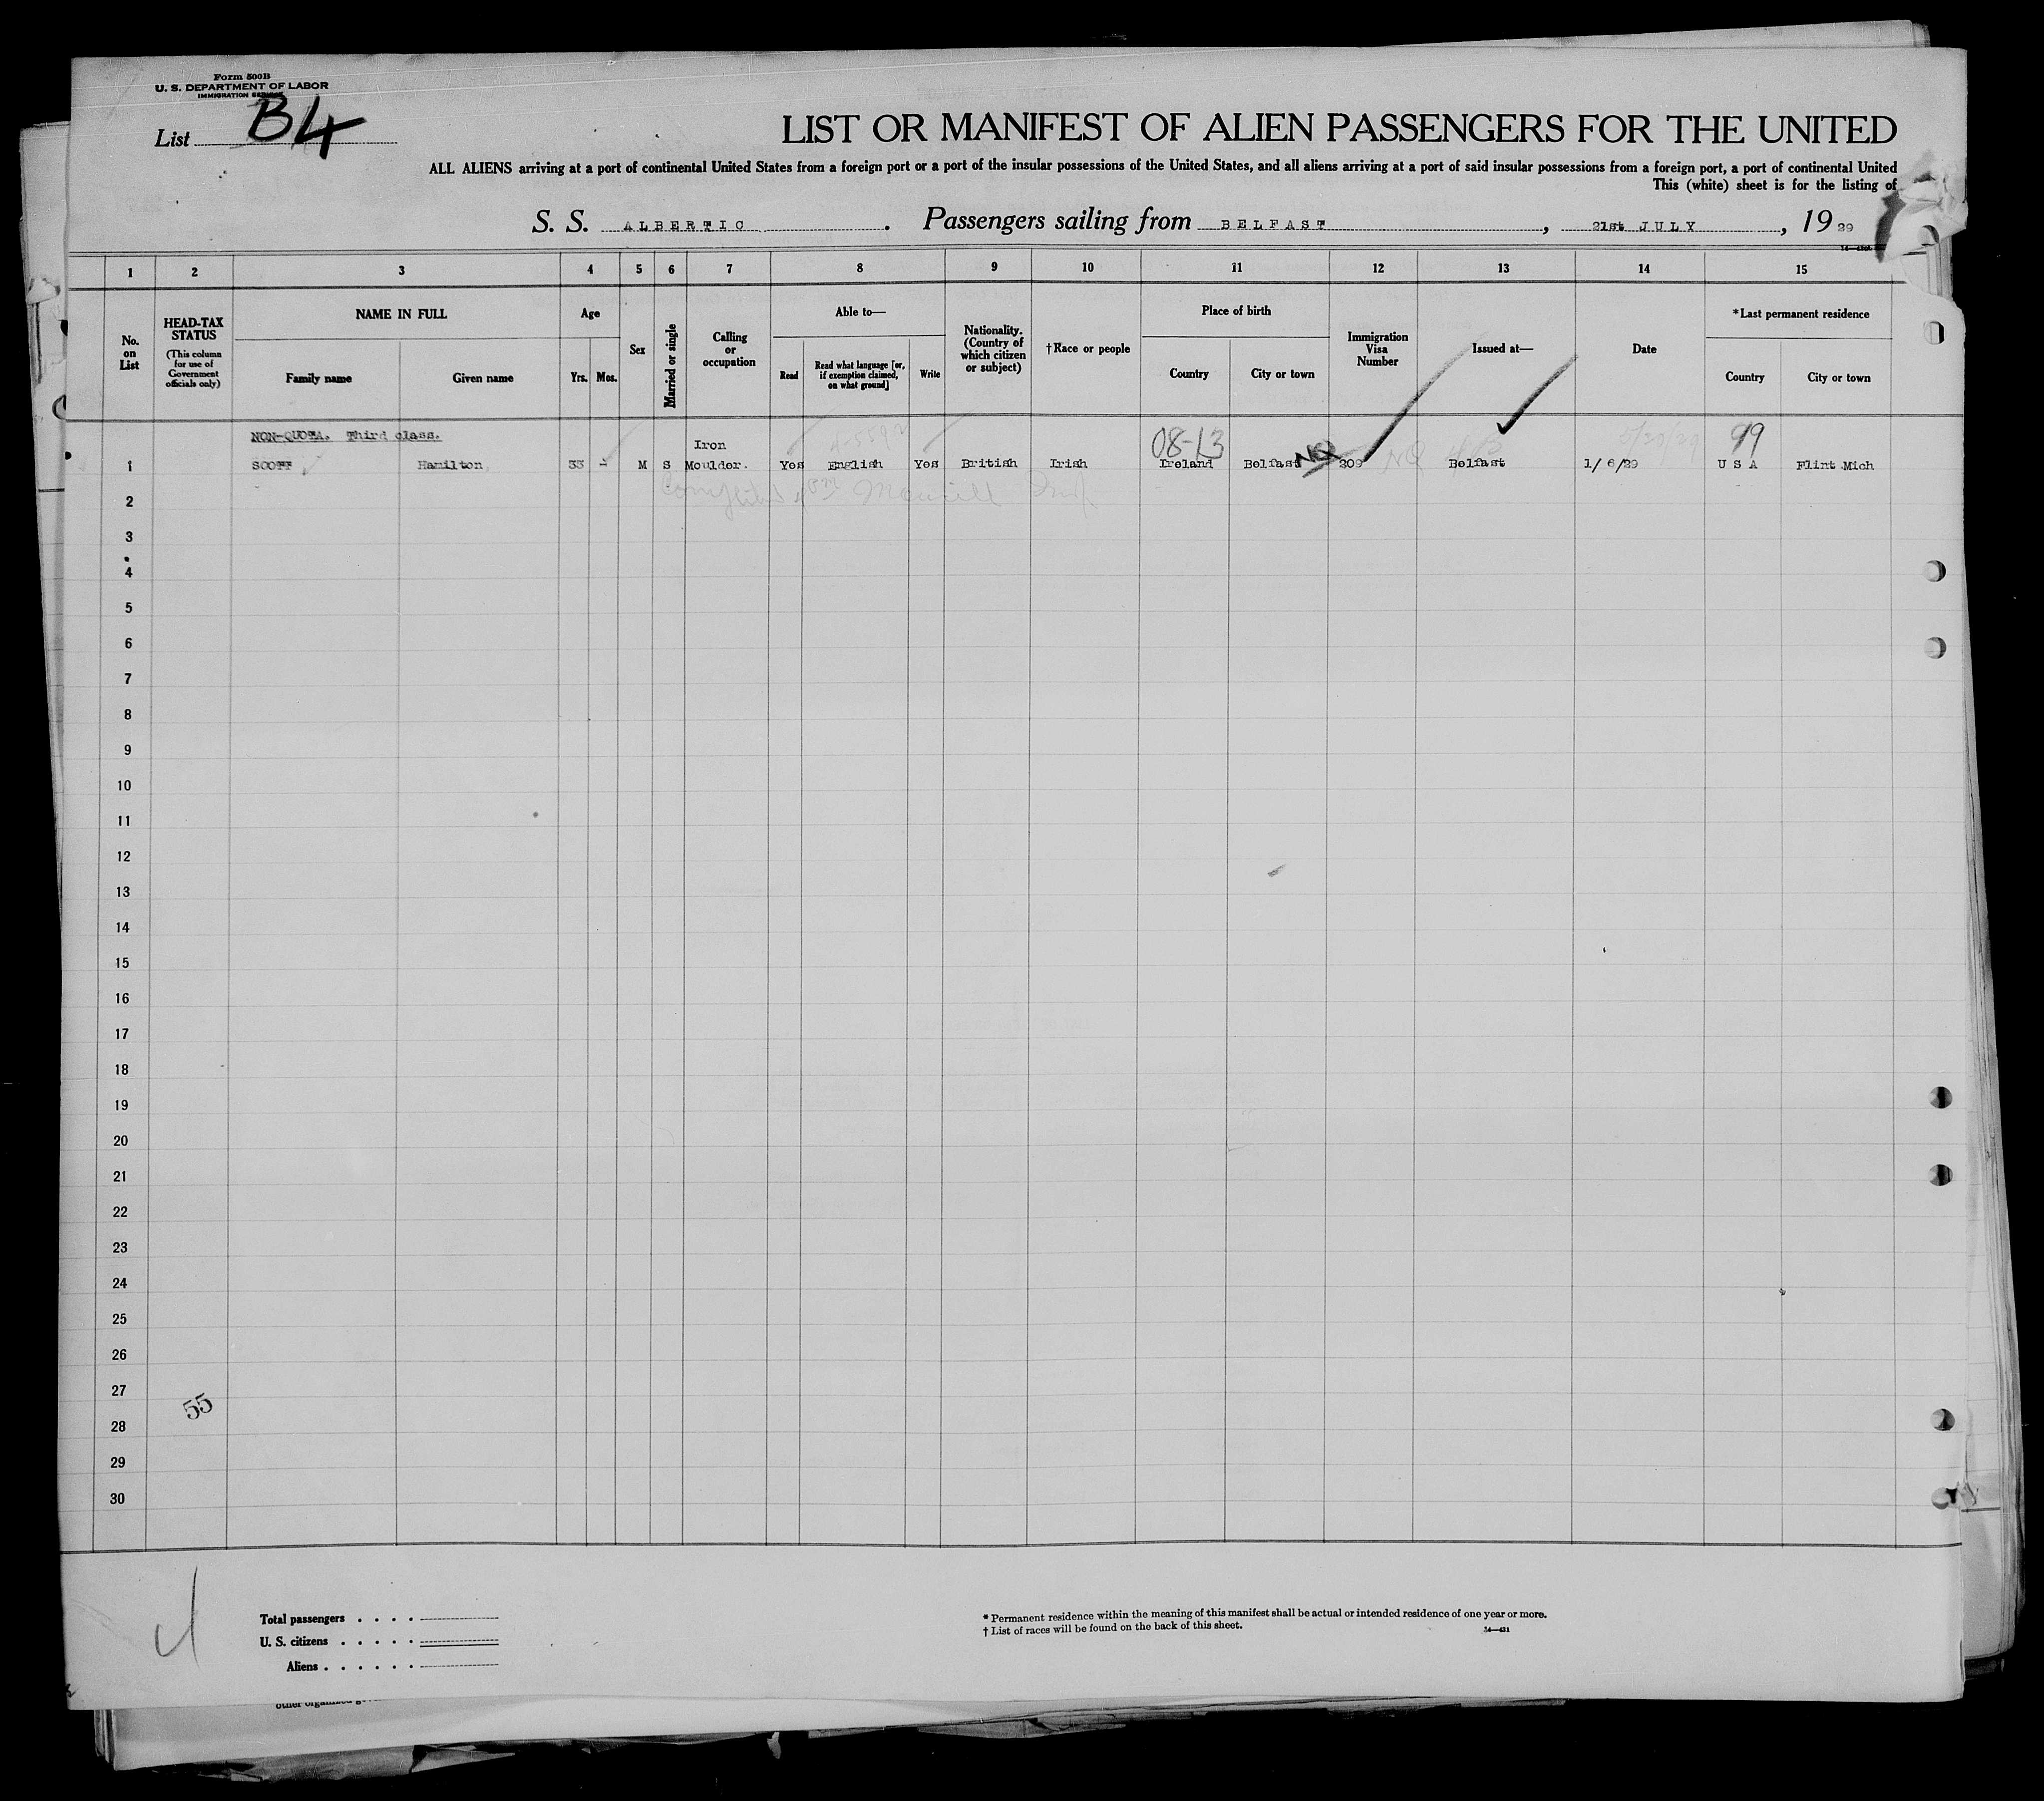 Form 500B
U. S. DEPARTMENT OF LABOR
IMMIGRATION SERVICE
List B4
LIST OR MANIFEST OF ALIEN PASSENGERS FOR THE UNITED
ALL ALIENS arriving at a port of continental United States from a foreign port or a port of the insular possessions of the United States, and all aliens arriving at a port of said insular possessions from a foreign port, a port of continental United
This (white) sheet is for the listing of
S. S. ALBERTIC. Passengers sailing from BELFAST, 21st JULY, 19 29
1 2 3 4 5 6 7 8 9 10 11 12 13 14 15
No. on List
HEAD-TAX STATUS (This column for use of Government officials only)
NAME IN FULL
Family name Given name
Age
Yrs. Mos.
Sex
Married or single
Calling or occupation
Able to—
Read
Read what language [or, if exemption claimed, on what ground]
Write
Nationality. (Country of which citizen or subject)
†Race or people
Place of birth
Country City or town
Immigration Visa Number
Issued at—
Date
*Last permanent residence
Country City or town
NON-QUOTA. Third class.
Iron 08-13 99
1 SCOTT Hamilton 33 - M S Moulder. Yes English Yes British Irish Ireland Belfast NQ 209 NQ Belfast 1/6/29 U S A Flint Mich
2
3
4
5
6
7
8
9
10
11
12
13
14
15
16
17
18
19
20
21
22
23
24
25
26
27
55
28
29
30
Total passengers . . . .
U. S. citizens . . . . .
Aliens . . . . . .
* Permanent residence within the meaning of this manifest shall be actual or intended residence of one year or more.
† List of races will be found on the back of this sheet.
14—421